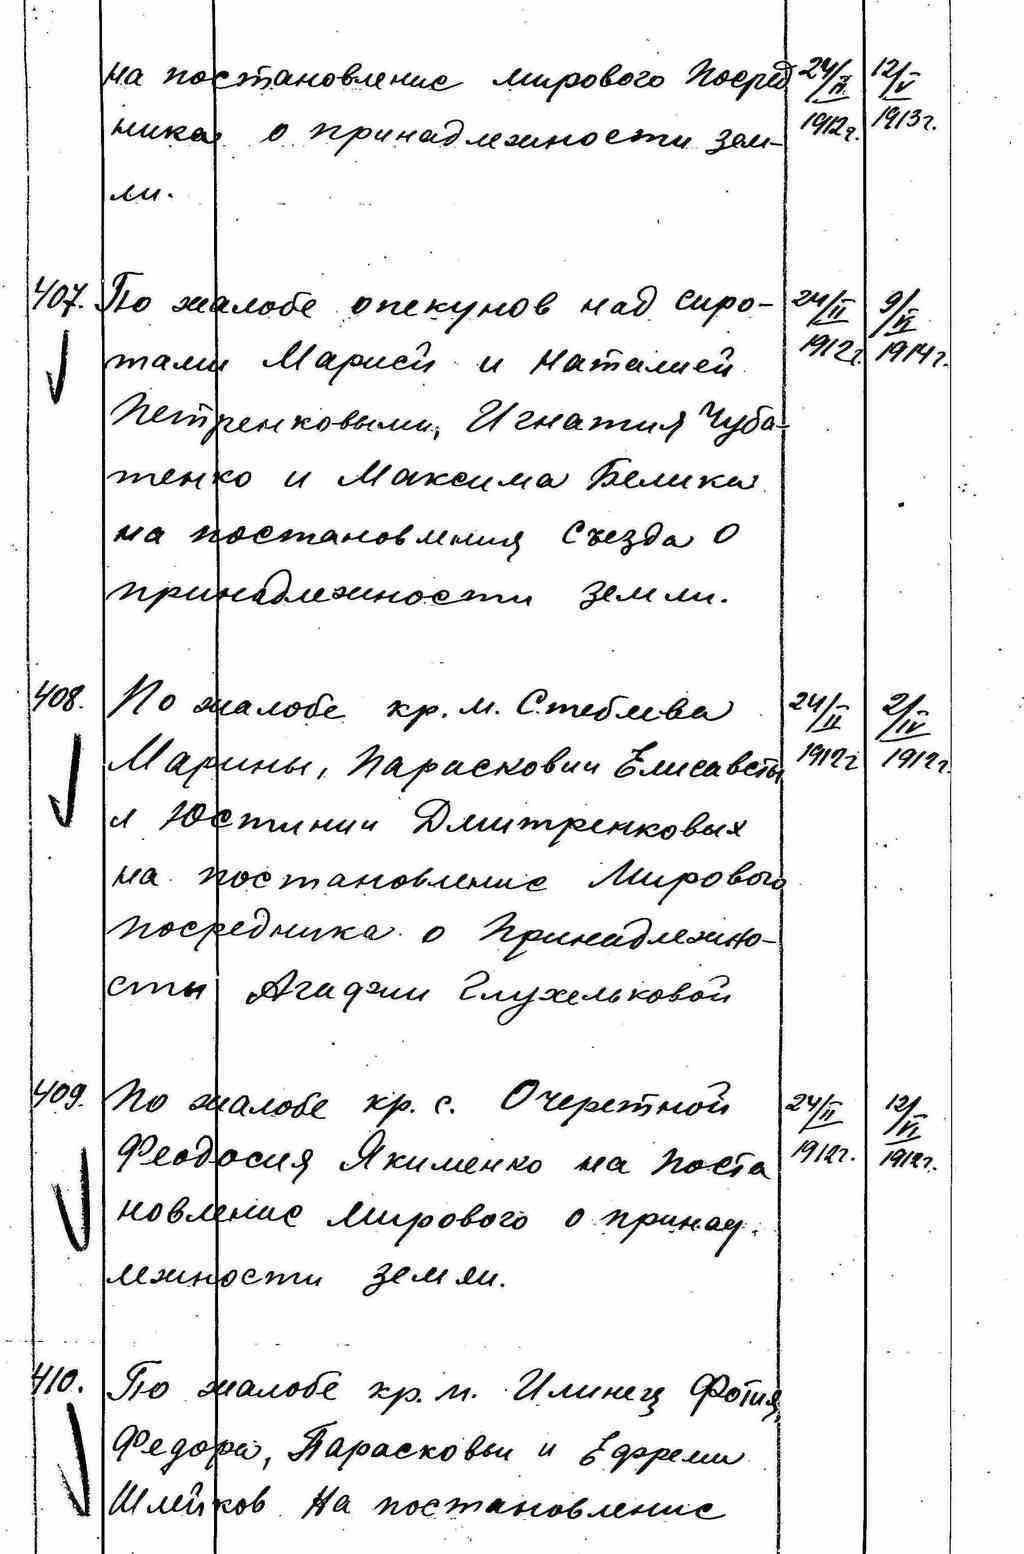 на постановление мирового Посред 24/II 12/V
ника о принадлежности зем- 1912г. 1913г.
ли.
407. По жалобе опекунов над сиро- 24/II 9/VI
тами Марией и Наталией 1912г. 1914г.
Петренковыми, Игнатия Чуба-
тенко и Максима Белика
на постановления Съезда О
принадлежности земли.
408. По жалобе кр. м. Стеблева 24/II 2/IV
Марины, Парасковии Елисаветы 1912г 1912г.
и Юстинии Дмитренковых
на постановление Мирового
посредника о Принадлежно-
сты Агафии Глухельковой
409. По жалобе кр. с. Очеретной 24/II 12/VI
Феодосия Якименко на поста 1912г. 1912г.
новление Мирового о принад.
лежности земли.
410. По жалобе кр. м. Илинец Фотия,
Федора, Парасковьи и Ефрема
Шлейков На постановление